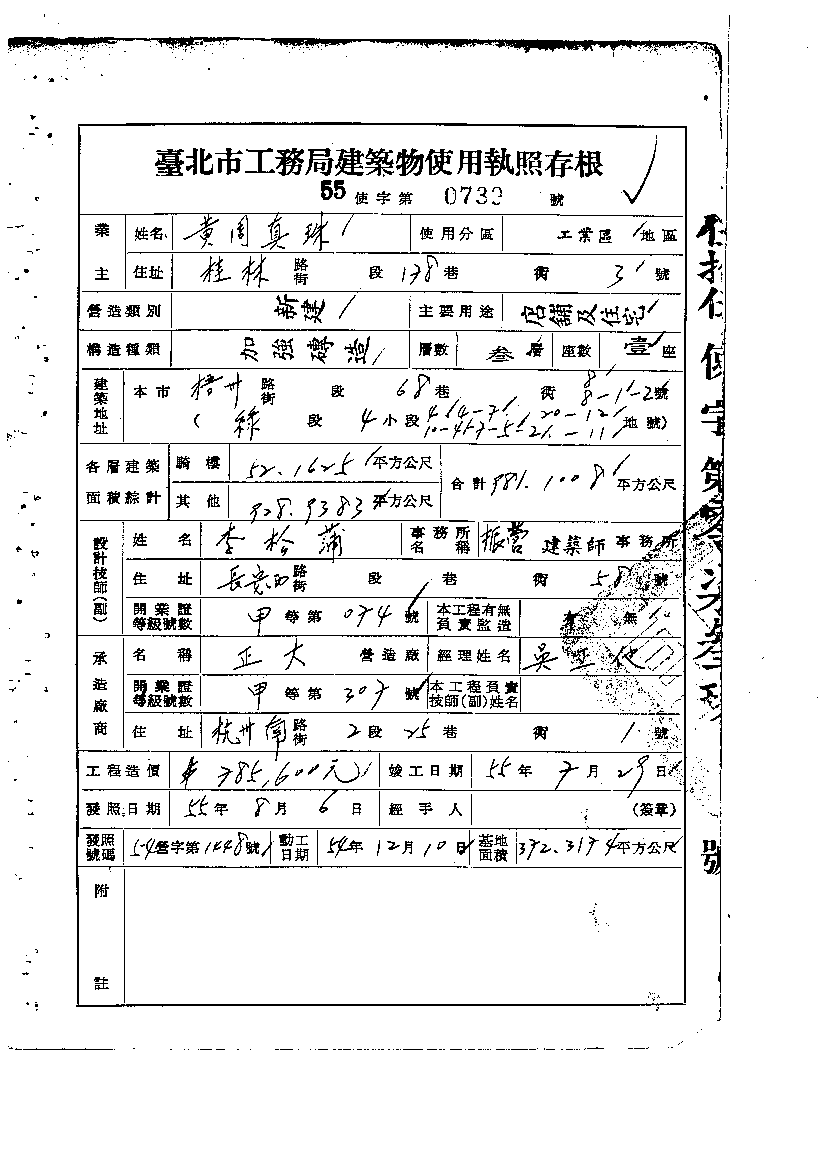 臺北市工務局建築物使用執照存根
55 使字第 0739 號
業主 姓名 黃周真珠 使用分區 工業區 地區
住址 桂林 路街 段 138巷 街 3 號
營造類別 新建 主要用途 店舖及住宅
構造種類 加強磚造 層數 叁層 座數 壹座
建築地址 本市 梧州 路街 段 68巷 街 8-1-2號
( 綠 段 4小段 地號)
各層建築面積綜計 騎樓 52.1625 平方公尺 合計 981.1008 平方公尺
其他 928.9383 平方公尺
設計技師(副) 姓名 李松蒲 事務所名稱 振營 建築師事務所
住址 長安西 路街 段 巷 街 58 號
開業證等級號數 甲等第 074 號 本工程有無負責監造 有 無
承造廠商 名稱 正大 營造廠 經理姓名 吳
開業證等級號數 甲等第 307 號 本工程負責技師(副)姓名
住址 杭州南 路街 2段 25巷 街 1 號
工程造價 785,600元 竣工日期 55年7月29日
發照日期 55年8月6日 經手人 (簽章)
發照號碼 54營字第1448號 動工日期 54年12月10日 基地面積 372.3174平方公尺
附註
使字第
號